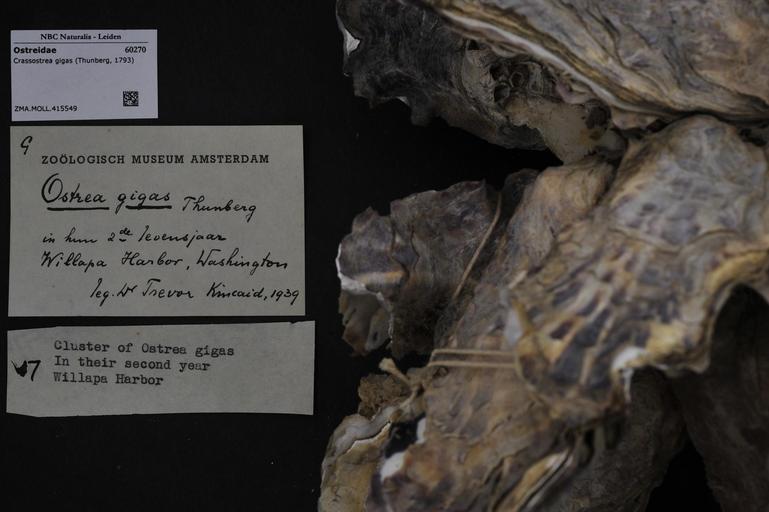 NBC Naturalis - Leiden
Ostreidae 60270
Crassostrea gigas (Thunberg, 1793)
ZMA.MOLL.415549
G
ZOÖLOGISCH MUSEUM AMSTERDAM
Ostrea gigas Thunberg
in hun 2de levensjaar
Willapa Harbor, Washington
leg. Dr Trevor Kincaid, 1939
7 Cluster of Ostrea gigas
In their second year
Willapa Harbor